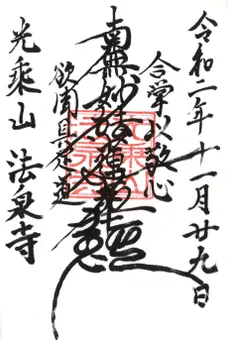 令和二年十一月廿九日
合掌以敬心
南無妙法蓮華経
欲聞具足道
光乗山 法泉寺